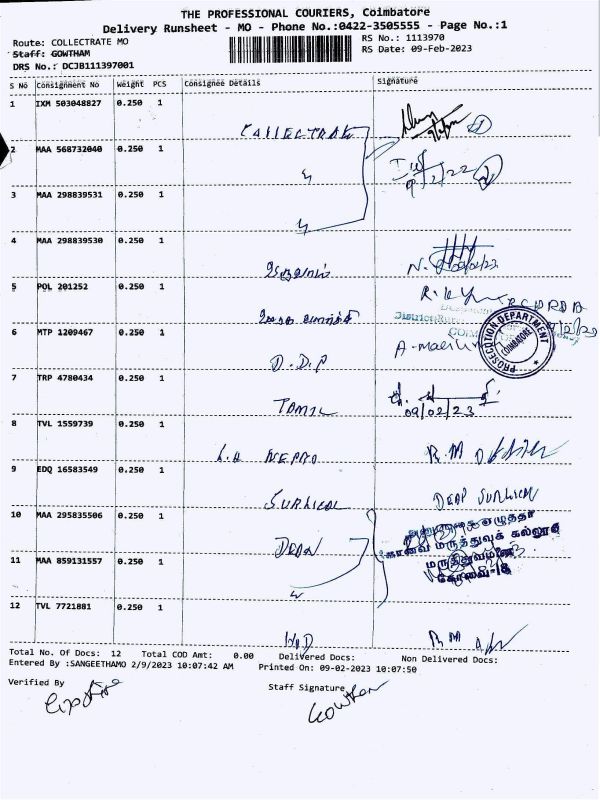 THE PROFESSIONAL COURIERS, Coimbatore
Delivery Runsheet - MO - Phone No.:0422-3505555 - Page No.:1
Route: COLLECTRATE MO
RS No.: 1113970
Staff: GOWTHAM
RS Date: 09-Feb-2023
DRS No.: DCJB111397001
S No Consignment No Weight PCS Consignee Details Signature
1 IXM 503048827 0.250 1
COLLECTRATE
2 MAA 568732040 0.250 1
3 MAA 298839531 0.250 1
4 MAA 298839530 0.250 1
5 POL 201252 0.250 1
6 MTP 1209467 0.250 1
D.D.P
PROSECUTION DEPARTMENT
COIMBATORE
7 TRP 4780434 0.250 1
TAMIL
09/02/23
8 TVL 1559739 0.250 1
NEPRO R.M
9 EDQ 16583549 0.250 1
SURGICAL DEAP SURGICAL
10 MAA 295835506 0.250 1
DEAN
கோவை மருத்துவக் கல்லூரி
மருத்துவமனை
கோவை-18
11 MAA 859131557 0.250 1
12 TVL 7721881 0.250 1
RM
Total No. Of Docs: 12 Total COD Amt: 0.00 Delivered Docs: Non Delivered Docs:
Entered By :SANGEETHAMO 2/9/2023 10:07:42 AM Printed On: 09-02-2023 10:07:50
Verified By Staff Signature
Gowthan